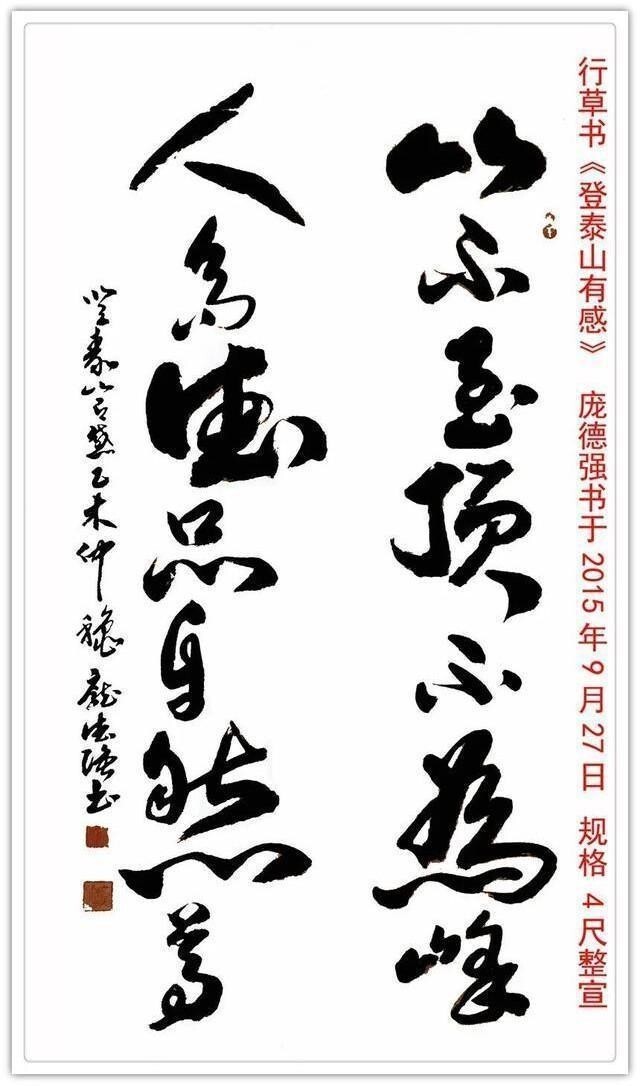 行草书《登泰山有感》 庞德强书于2015年9月27日 规格 4尺整宣
山不至顶不為峰
人德品自然尊
登泰山有感乙未仲秋 龐德强书